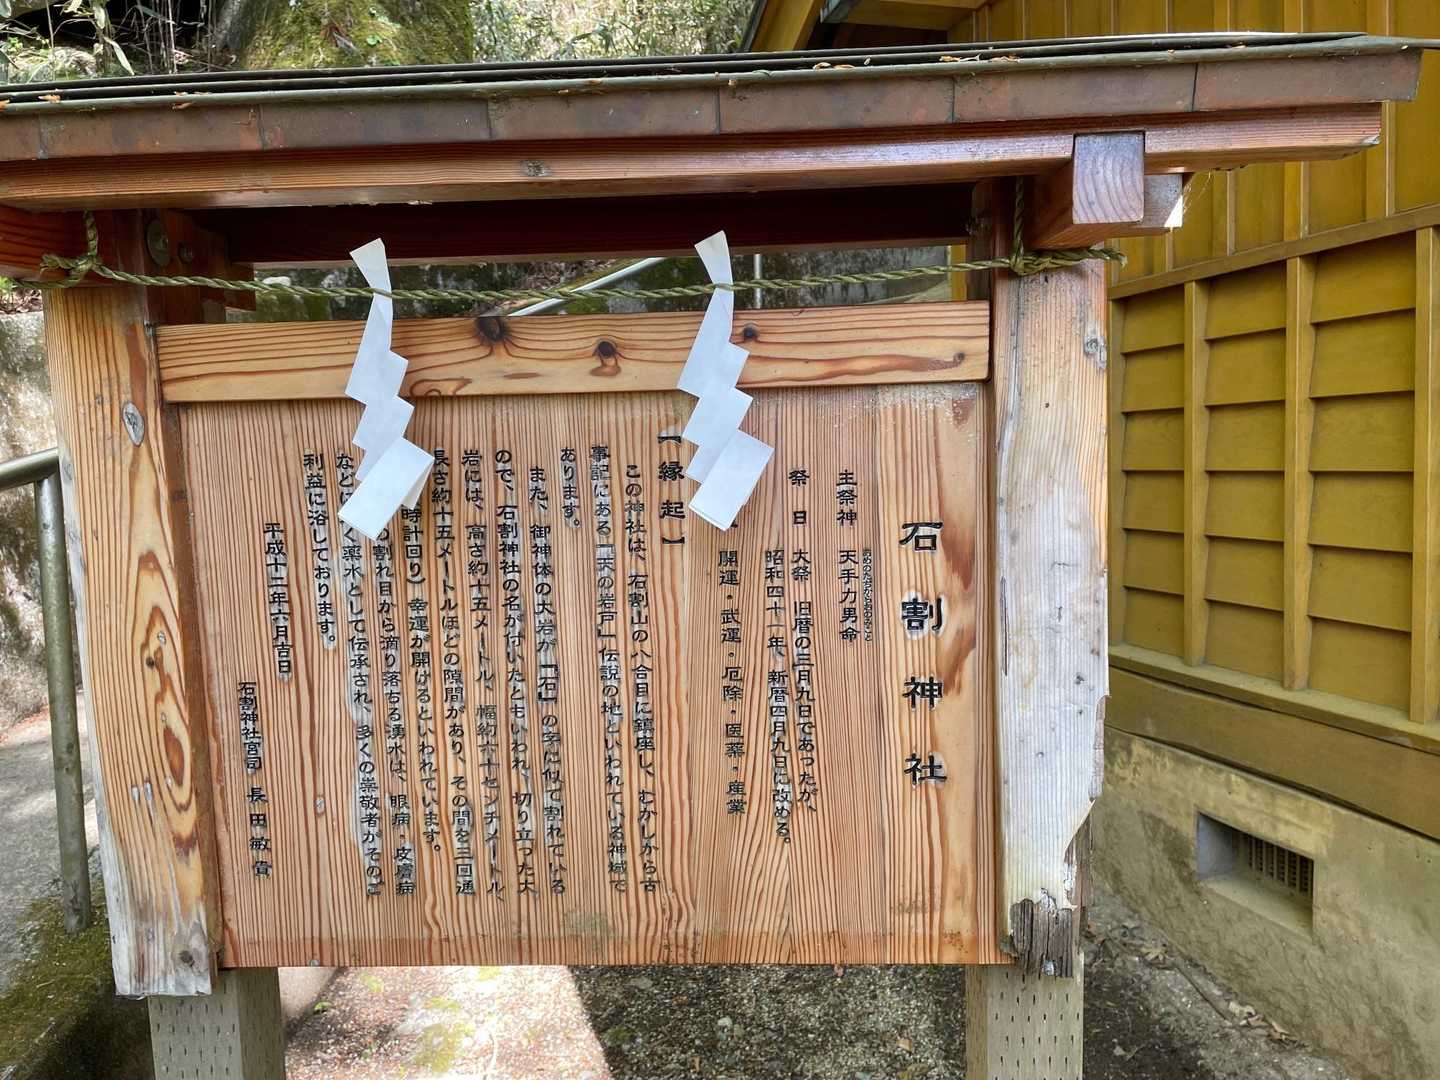 石割神社
主祭神　天手力男命
あめのたぢからおのみこと
祭　日　大祭　旧暦の三月九日であったが、
昭和四十一年、新暦四月九日に改める。
開運・武運・厄除・医薬・産業
【縁起】
この神社は、石割山の八合目に鎮座し、むかしから古
事記にある「天の岩戸」伝説の地といわれている神域で
あります。
また、御神体の大岩が「石」の字に似て割れている
ので、石割神社の名が付いたともいわれ、切り立った大
岩には、高さ約十五メートル、幅約六十センチメートル、
長さ約十五メートルほどの隙間があり、その間を三回通
時計回り）幸運が開けるといわれています。
の割れ目から滴り落ちる湧水は、眼病・皮膚病
などに　く薬水として伝承され、多くの崇敬者がそのご
利益に浴しております。
平成十二年六月吉日
石割神社宮司　長田敏貴